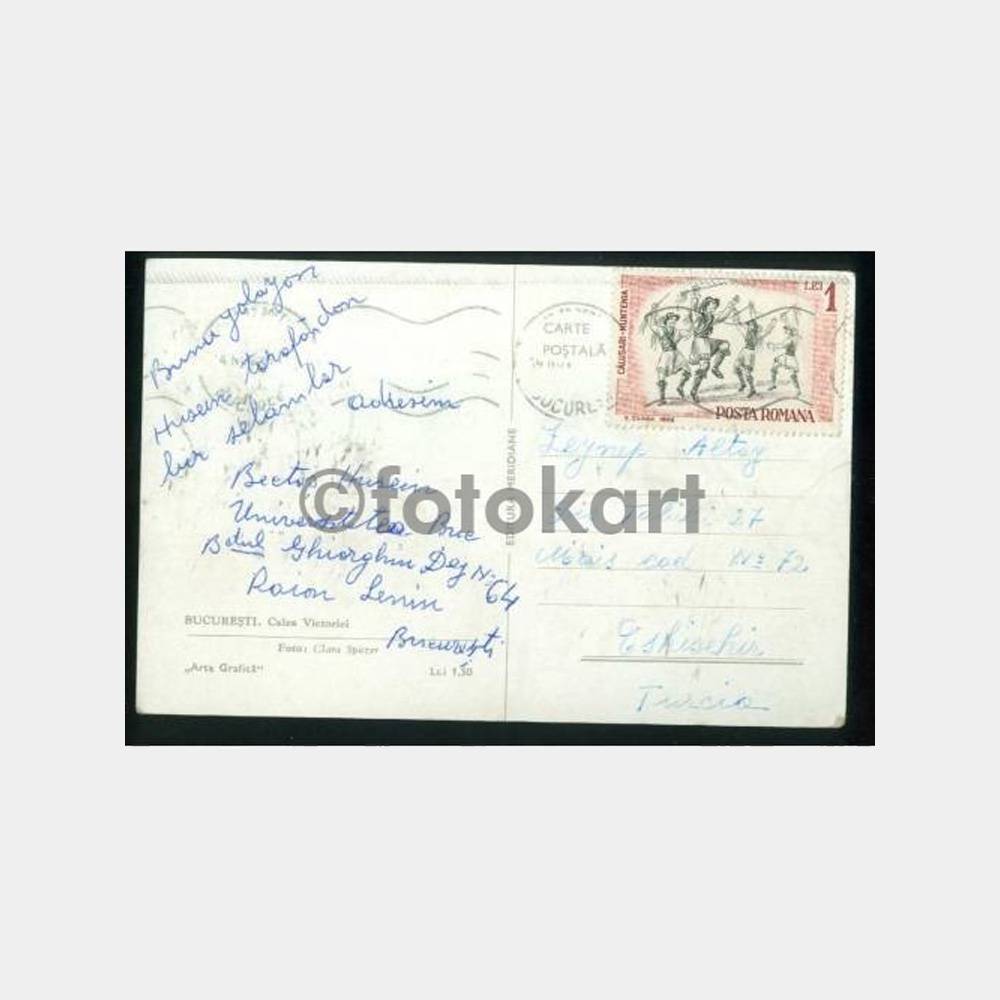 Bunu yolayon
Husein tarafından
bir selâmlar
adresim
Bector Husein
Universitatea Buc
Bdul Ghiorghiu Dej No 64
Raion Lenin
București
BUCUREȘTI. Calea Victoriei
Foto: Clara Spitzer
„Arta Grafică“
Lei 1,50
EDITURA MERIDIANE
CARTE
POȘTALĂ
BUCUR
CĂLUȘARI-MUNTENIA
LEI 1
POSTA ROMANA
Zeynep Altay
27
cad No 72
Eskisehir
Turcia
©fotokart